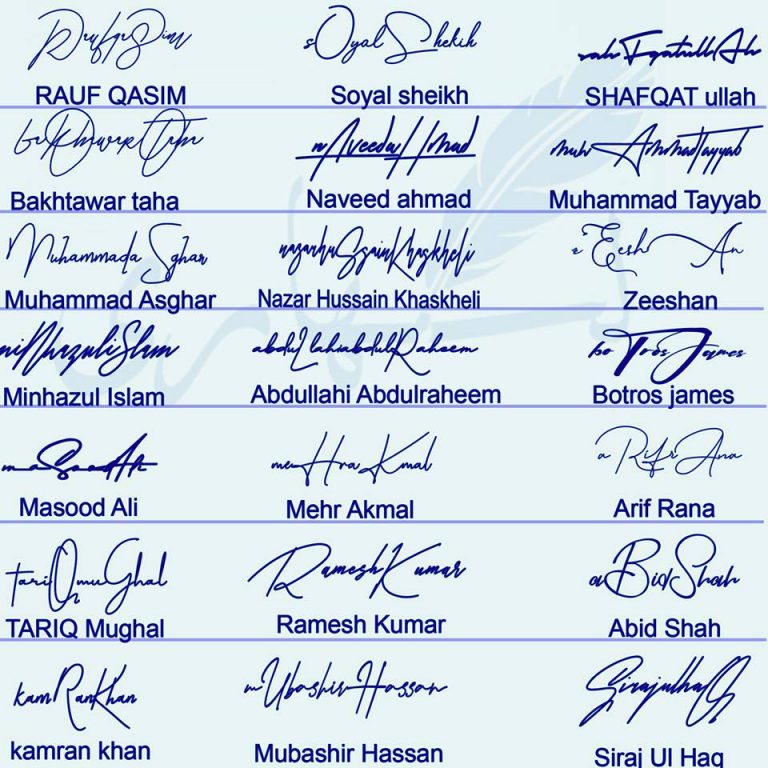 Raufqasim sOyalSheikh rahfqatullAh
RAUF QASIM Soyal sheikh SHAFQAT ullah
Naveed Ahmad muhAmmadTayyab
Bakhtawar taha Naveed ahmad Muhammad Tayyab
Muhammada Sghar nazarhuSsainKhaskheli zEeshAn
Muhammad Asghar Nazar Hussain Khaskheli Zeeshan
miNhazuliSlam abduLlahiabdulRaheem boTrosJames
Minhazul Islam Abdullahi Abdulraheem Botros james
maSoodAli meHraKmal aRifrAna
Masood Ali Mehr Akmal Arif Rana
tariQmuGhal RameshKumar aBidShah
TARIQ Mughal Ramesh Kumar Abid Shah
kamRanKhan mUbashirHassan SirajulhaQ
kamran khan Mubashir Hassan Siraj Ul Haq